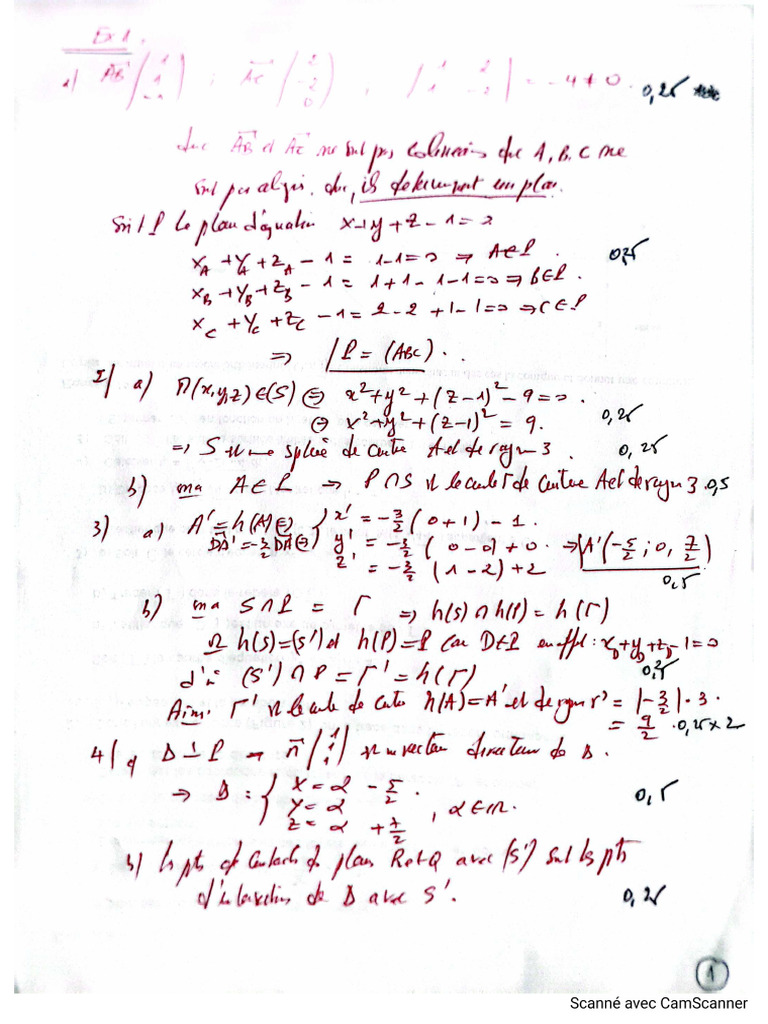 Ex 1.
1) AB (1 1 -1) ; AC (2 -2 0) , |1 2 1 -2| = -4 ≠ 0. 0,25
donc AB et AC ne sont pas colinéaires donc A, B, C ne
sont pas alignés. donc, ils déterminent un plan.
Soit P le plan d'équation x+y+z-1=0
xA + yA + zA - 1 = 1-1=0 ⇒ A∈P. 0,25
xB + yB + zB - 1 = 1+1-1-1=0 ⇒ B∈P.
xC + yC + zC - 1 = 2-2+1-1=0 ⇒ C∈P
⇒ P = (ABC).
2/ a) M(x,y,z)∈(S) ⇔ x²+y²+(z-1)²-9=0.
⇔ x²+y²+(z-1)²=9. 0,25
⇒ S est une sphère de centre A et de rayon 3. 0,25
b) ma A∈P ⇒ P∩S est le cercle Γ de centre A et de rayon 3 0,5
3) a) A'=h(A) ⇔ { x' = -3/2 (0+1) - 1.
DA' = -3/2 DA ⇔ y' = -3/2 (0-0) + 0 ⇒ A'(-5/2 ; 0, 7/2)
z' = -3/2 (1-2) + 2 0,5
b) ma S∩P = Γ ⇒ h(S)∩h(P) = h(Γ)
or h(S)=(S') et h(P)=P car D∈P en effet : xD+yD+zD-1=0
d'où (S')∩P = Γ' = h(Γ) 0,25
Ainsi Γ' est le cercle de centre h(A)=A' et de rayon r' = |-3/2|·3.
= 9/2 . 0,25×2
4/ a) Δ⊥P ⇒ n (1 1 1) est un vecteur directeur de Δ.
⇒ Δ : { x = α - 5/2 . 0,5
y = α , α∈IR.
z = α + 7/2
b) les pts de contacts des plans R et Q avec (S') sont les pts
d'intersection de Δ avec S'. 0,25
1
Scanné avec CamScanner